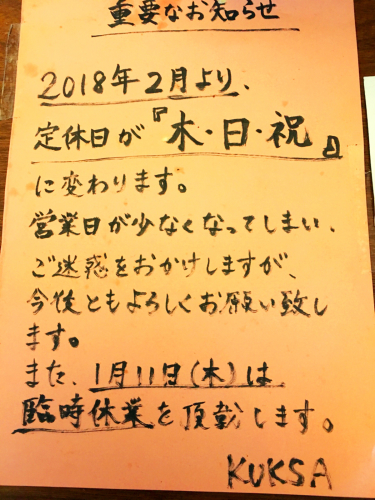 重要なお知らせ
2018年2月より、
定休日が『木・日・祝』
に変わります。
営業日が少なくなってしまい、
ご迷惑をおかけしますが、
今後ともよろしくお願い致し
ます。
また、1月11日(木)は
臨時休業を頂戴します。
KUKSA